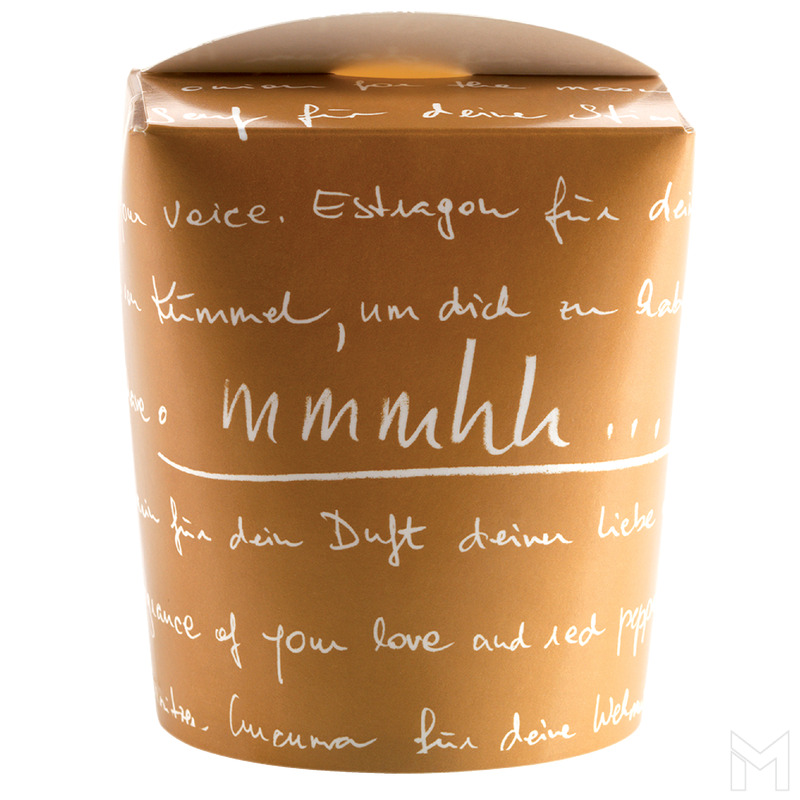 onion for the moon
Senf für deine
voice. Estragon für dein
Kümmel, um dich zu
mmmhh...
für dein Duft deiner Liebe
of your love and red pepper
Curcuma für deine
M